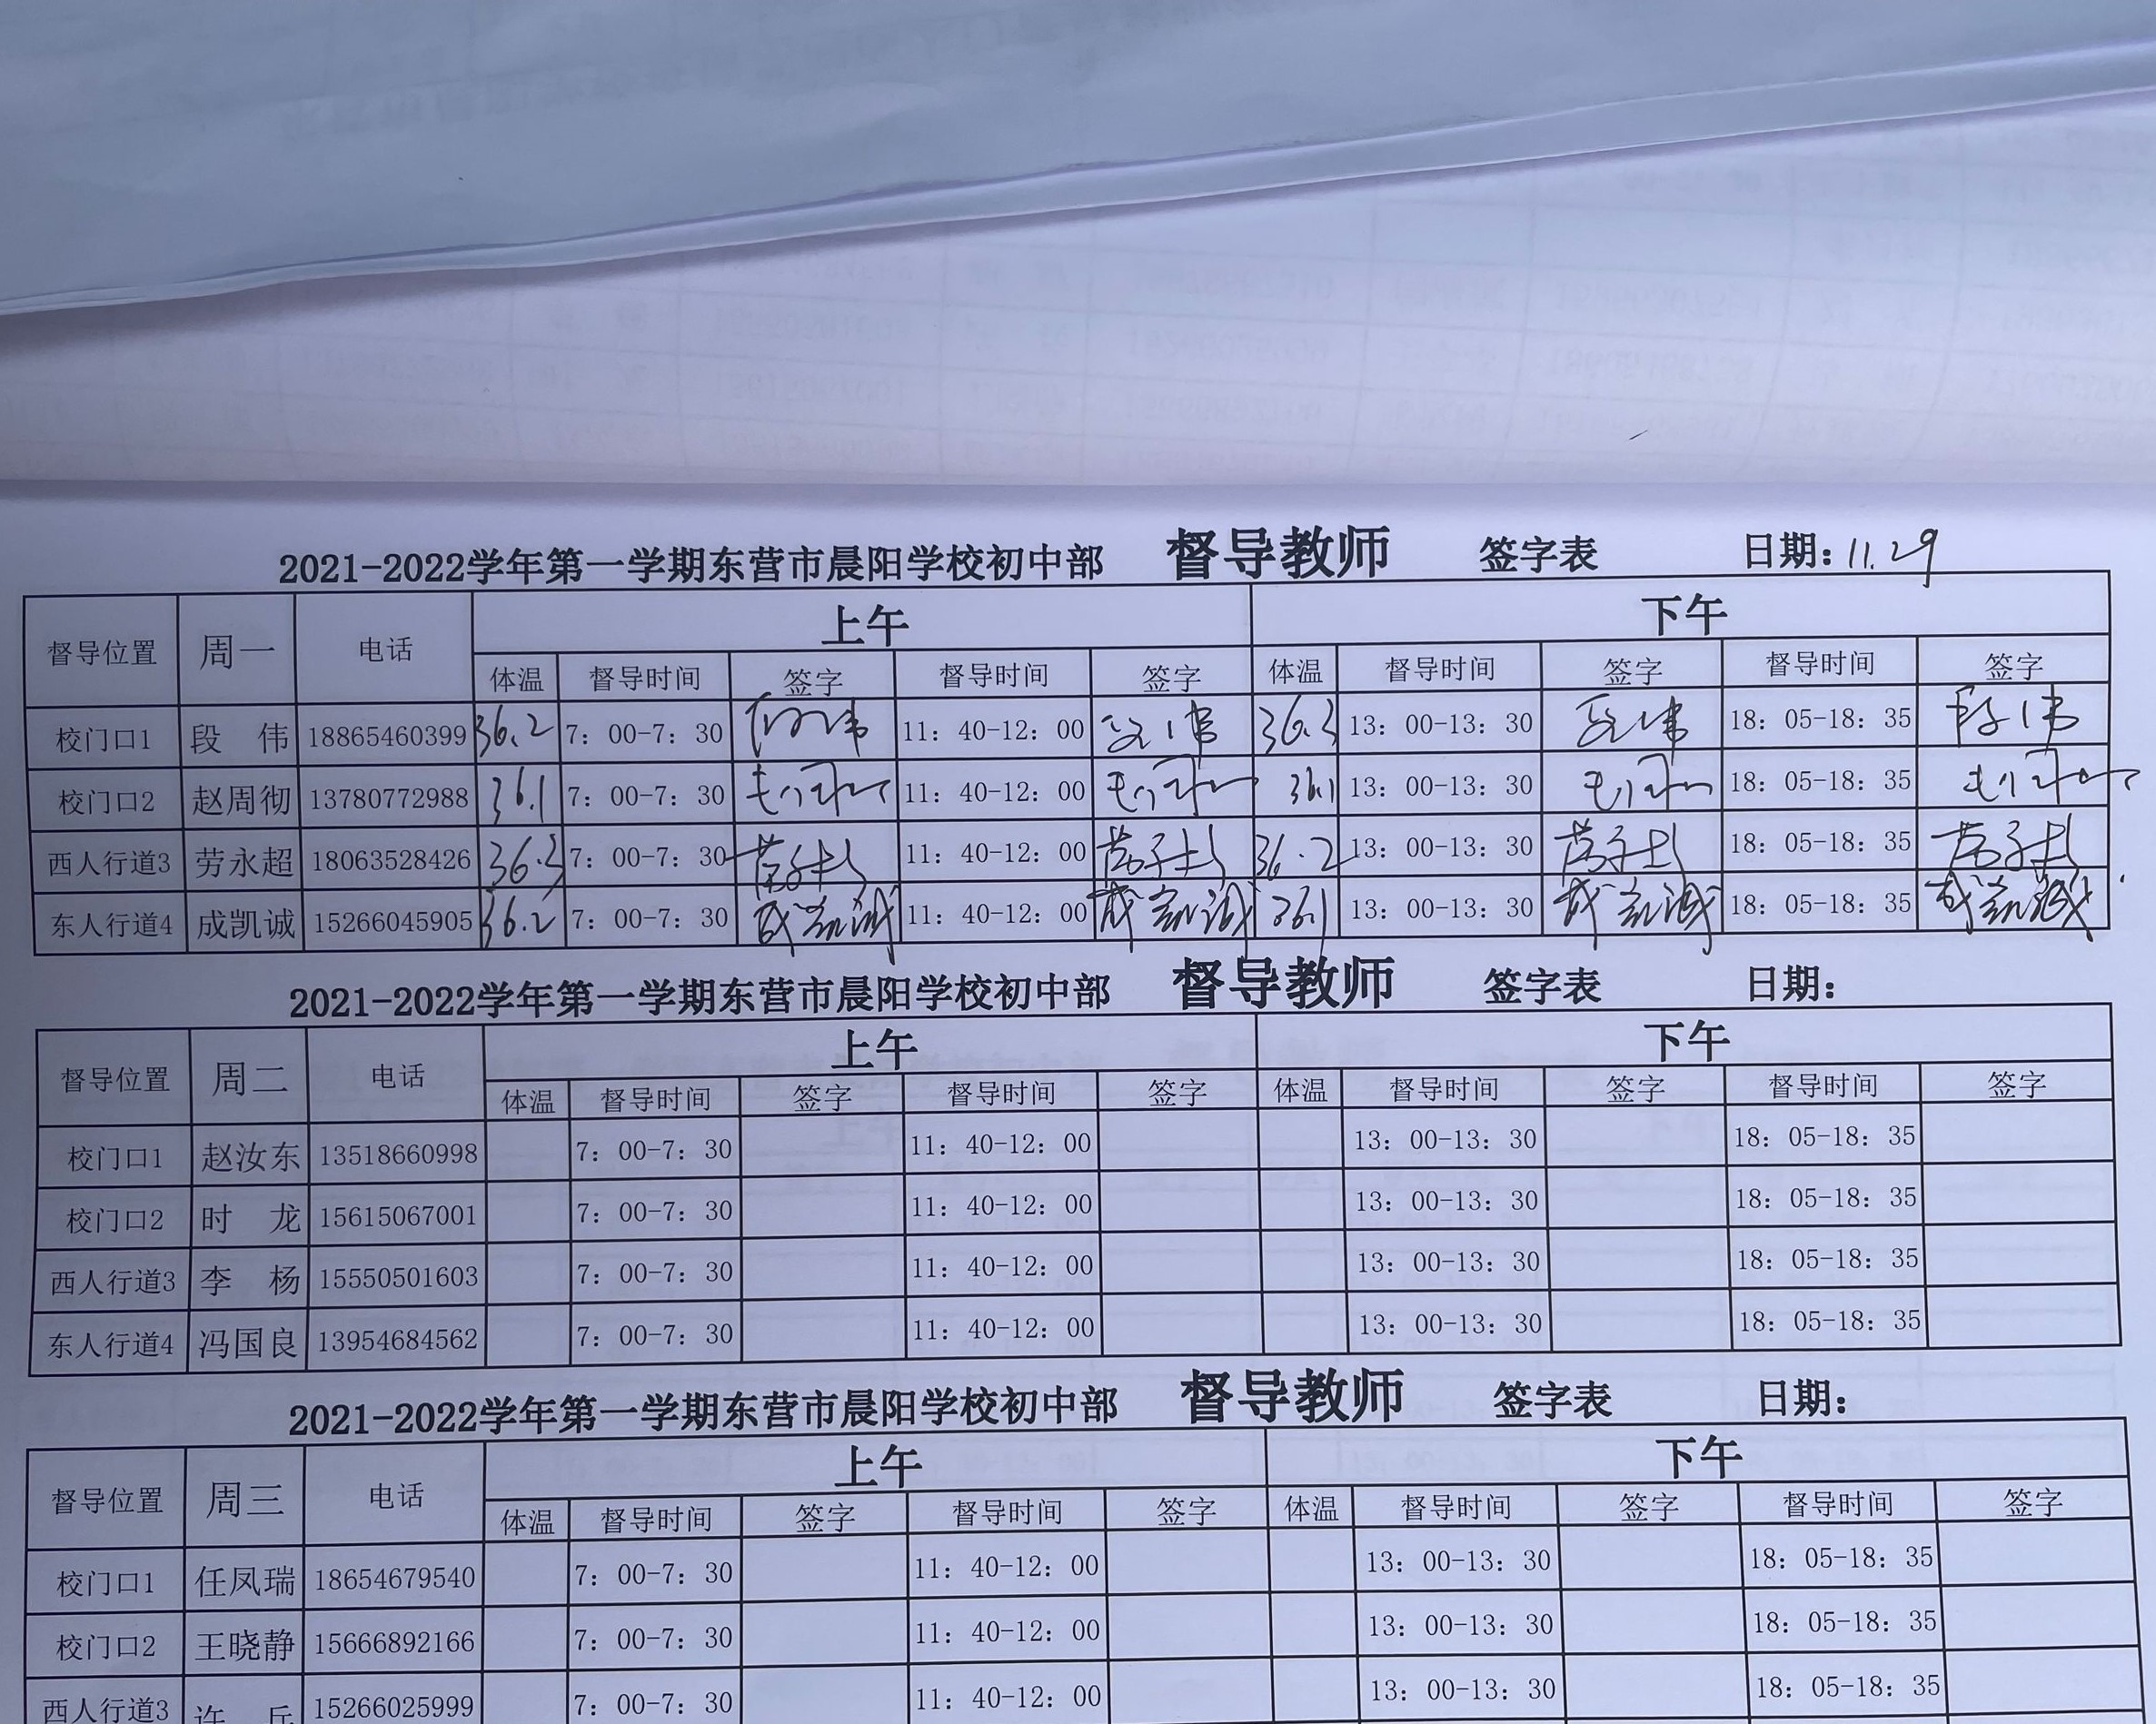 2021-2022学年第一学期东营市晨阳学校初中部 督导教师 签字表 日期: 11.29
督导位置 周一 电话 上午 下午
体温 督导时间 签字 督导时间 签字 体温 督导时间 签字 督导时间 签字
校门口1 段 伟 18865460399 36.2 7: 00-7: 30 段伟 11: 40-12: 00 段伟 36.3 13: 00-13: 30 段伟 18: 05-18: 35 段伟
校门口2 赵周彻 13780772988 36.1 7: 00-7: 30 11: 40-12: 00 36.1 13: 00-13: 30 18: 05-18: 35
西人行道3 劳永超 18063528426 36.3 7: 00-7: 30 11: 40-12: 00 36.2 13: 00-13: 30 18: 05-18: 35
东人行道4 成凯诚 15266045905 36.2 7: 00-7: 30 成凯诚 11: 40-12: 00 成凯诚 36.1 13: 00-13: 30 成凯诚 18: 05-18: 35 成凯诚
2021-2022学年第一学期东营市晨阳学校初中部 督导教师 签字表 日期:
督导位置 周二 电话 上午 下午
体温 督导时间 签字 督导时间 签字 体温 督导时间 签字 督导时间 签字
校门口1 赵汝东 13518660998 7: 00-7: 30 11: 40-12: 00 13: 00-13: 30 18: 05-18: 35
校门口2 时 龙 15615067001 7: 00-7: 30 11: 40-12: 00 13: 00-13: 30 18: 05-18: 35
西人行道3 李 杨 15550501603 7: 00-7: 30 11: 40-12: 00 13: 00-13: 30 18: 05-18: 35
东人行道4 冯国良 13954684562 7: 00-7: 30 11: 40-12: 00 13: 00-13: 30 18: 05-18: 35
2021-2022学年第一学期东营市晨阳学校初中部 督导教师 签字表 日期:
督导位置 周三 电话 上午 下午
体温 督导时间 签字 督导时间 签字 体温 督导时间 签字 督导时间 签字
校门口1 任凤瑞 18654679540 7: 00-7: 30 11: 40-12: 00 13: 00-13: 30 18: 05-18: 35
校门口2 王晓静 15666892166 7: 00-7: 30 11: 40-12: 00 13: 00-13: 30 18: 05-18: 35
西人行道3 许 15266025999 7: 00-7: 30 11: 40-12: 00 13: 00-13: 30 18: 05-18: 35